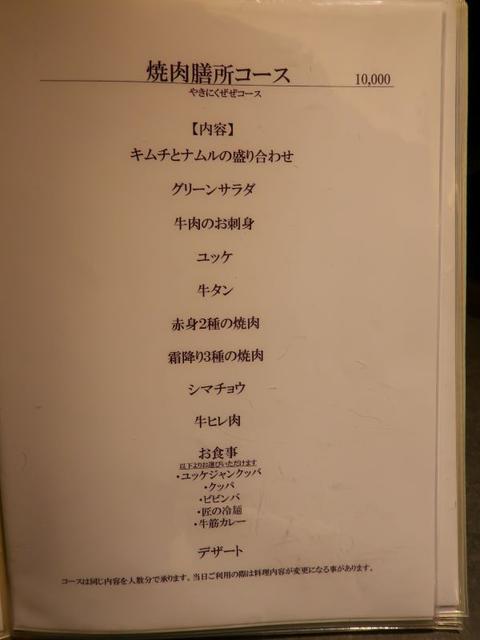 焼肉膳所コース 10,000
やきにくぜぜコース
【内容】
キムチとナムルの盛り合わせ
グリーンサラダ
牛肉のお刺身
ユッケ
牛タン
赤身2種の焼肉
霜降り3種の焼肉
シマチョウ
牛ヒレ肉
お食事
以下よりお選びいただけます
・ユッケジャンクッパ
・クッパ
・ビビンバ
・匠の冷麺
・牛筋カレー
デザート
コースは同じ内容を人数分で承ります。当日ご利用の際は料理内容が変更になる事があります。